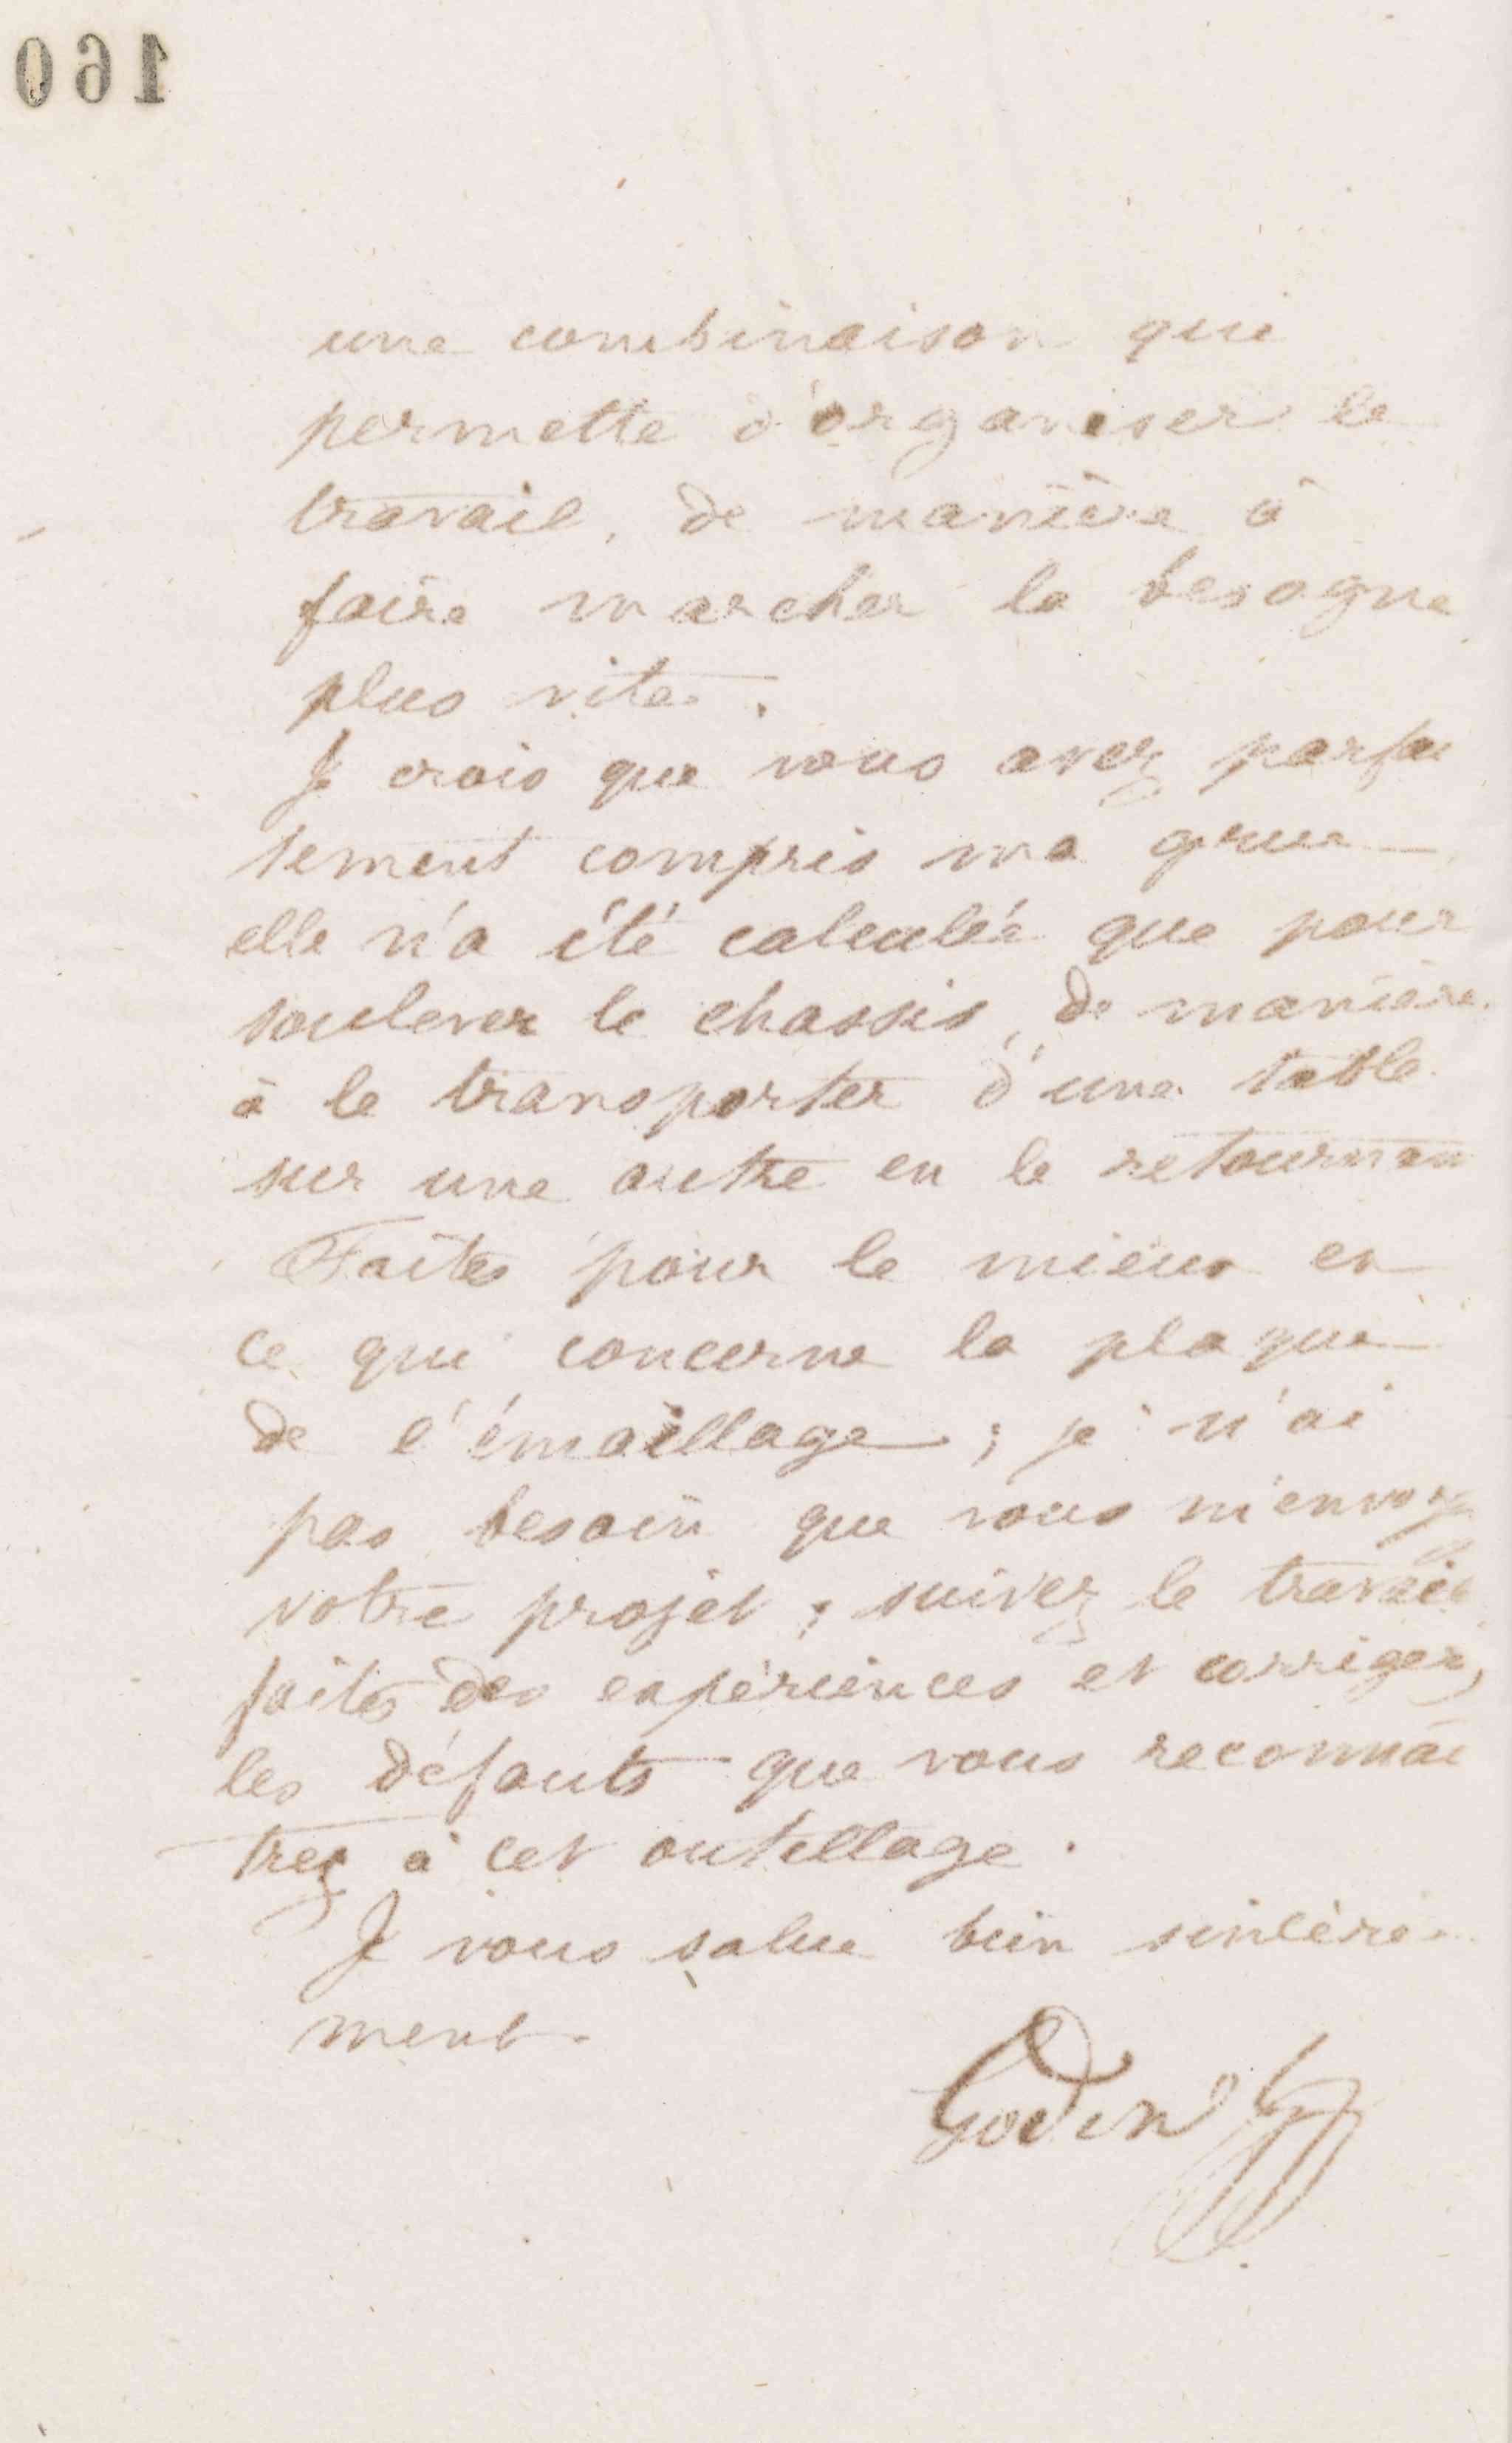 160
une combinaison qui
permette d'organiser le
travail, de manière à
faire marcher la besogne
plus vite.
Je crois que vous avez parfai
tement compris ma grue
elle n'a été calculée que pour
soulever le chassis, de manière
à le transporter d'une table
sur une autre en le retournan
Faites pour le mieux en
ce qui concerne la plaque
de l'émaillage ; je n'ai
pas besoin que vous m'envoyez
votre projet ; suivez le travail
faites des expériences et corrigez
les défauts que vous reconnaî
trez à cet outillage.
Je vous salue bien sincère
ment.
Godin